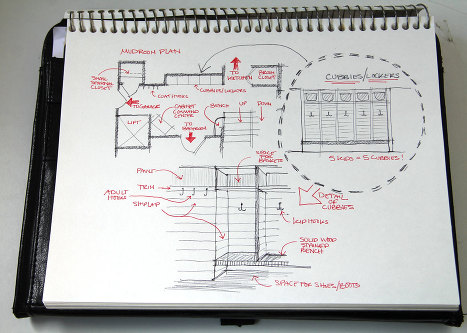 MUDROOM PLAN
SMALL
STORAGE
CLOSET
COAT HOOKS
CUBBIES/LOCKERS
TO
KITCHEN
BROOM
CLOSET
TO GARAGE
CABINET
COMMAND
CENTER
BENCH
UP
DOWN
LIFT
TO
BATHROOM
CUBBIES/LOCKERS
5 KIDS = 5 CUBBIES!
PAINT
TRIM
ADULT
HOOKS
SHIPLAP
SPACE
FOR
BASKETS
DETAIL
OF
CUBBIES
KID HOOKS
SOLID WOOD
STAINED
BENCH
SPACE FOR SHOES/BOOTS